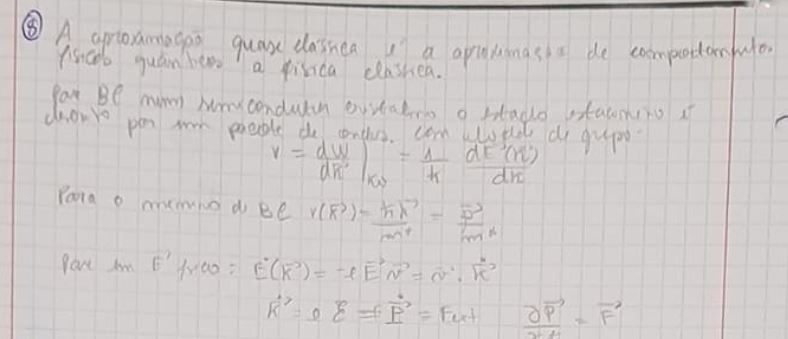 ⑧ A aproximação quase clássica é a aproximação de comportamento
físicos quânticos a física clássica.
Para BC num semicondutor cristalino o estado estacionário é
descrito por um pacote de ondas. Com velocidade de grupo:
v = dW/dK )K0 = 1/ħ dE(K)/dK
Para o mínimo da BC v(K⃗) = ħK⃗/m* = p⃗/m*
Para um E⃗ fixo: Ė(K⃗) = -e E⃗ v⃗ = v⃗ . K⃗
= P⃗ = Fext ∂P⃗/∂t = F⃗